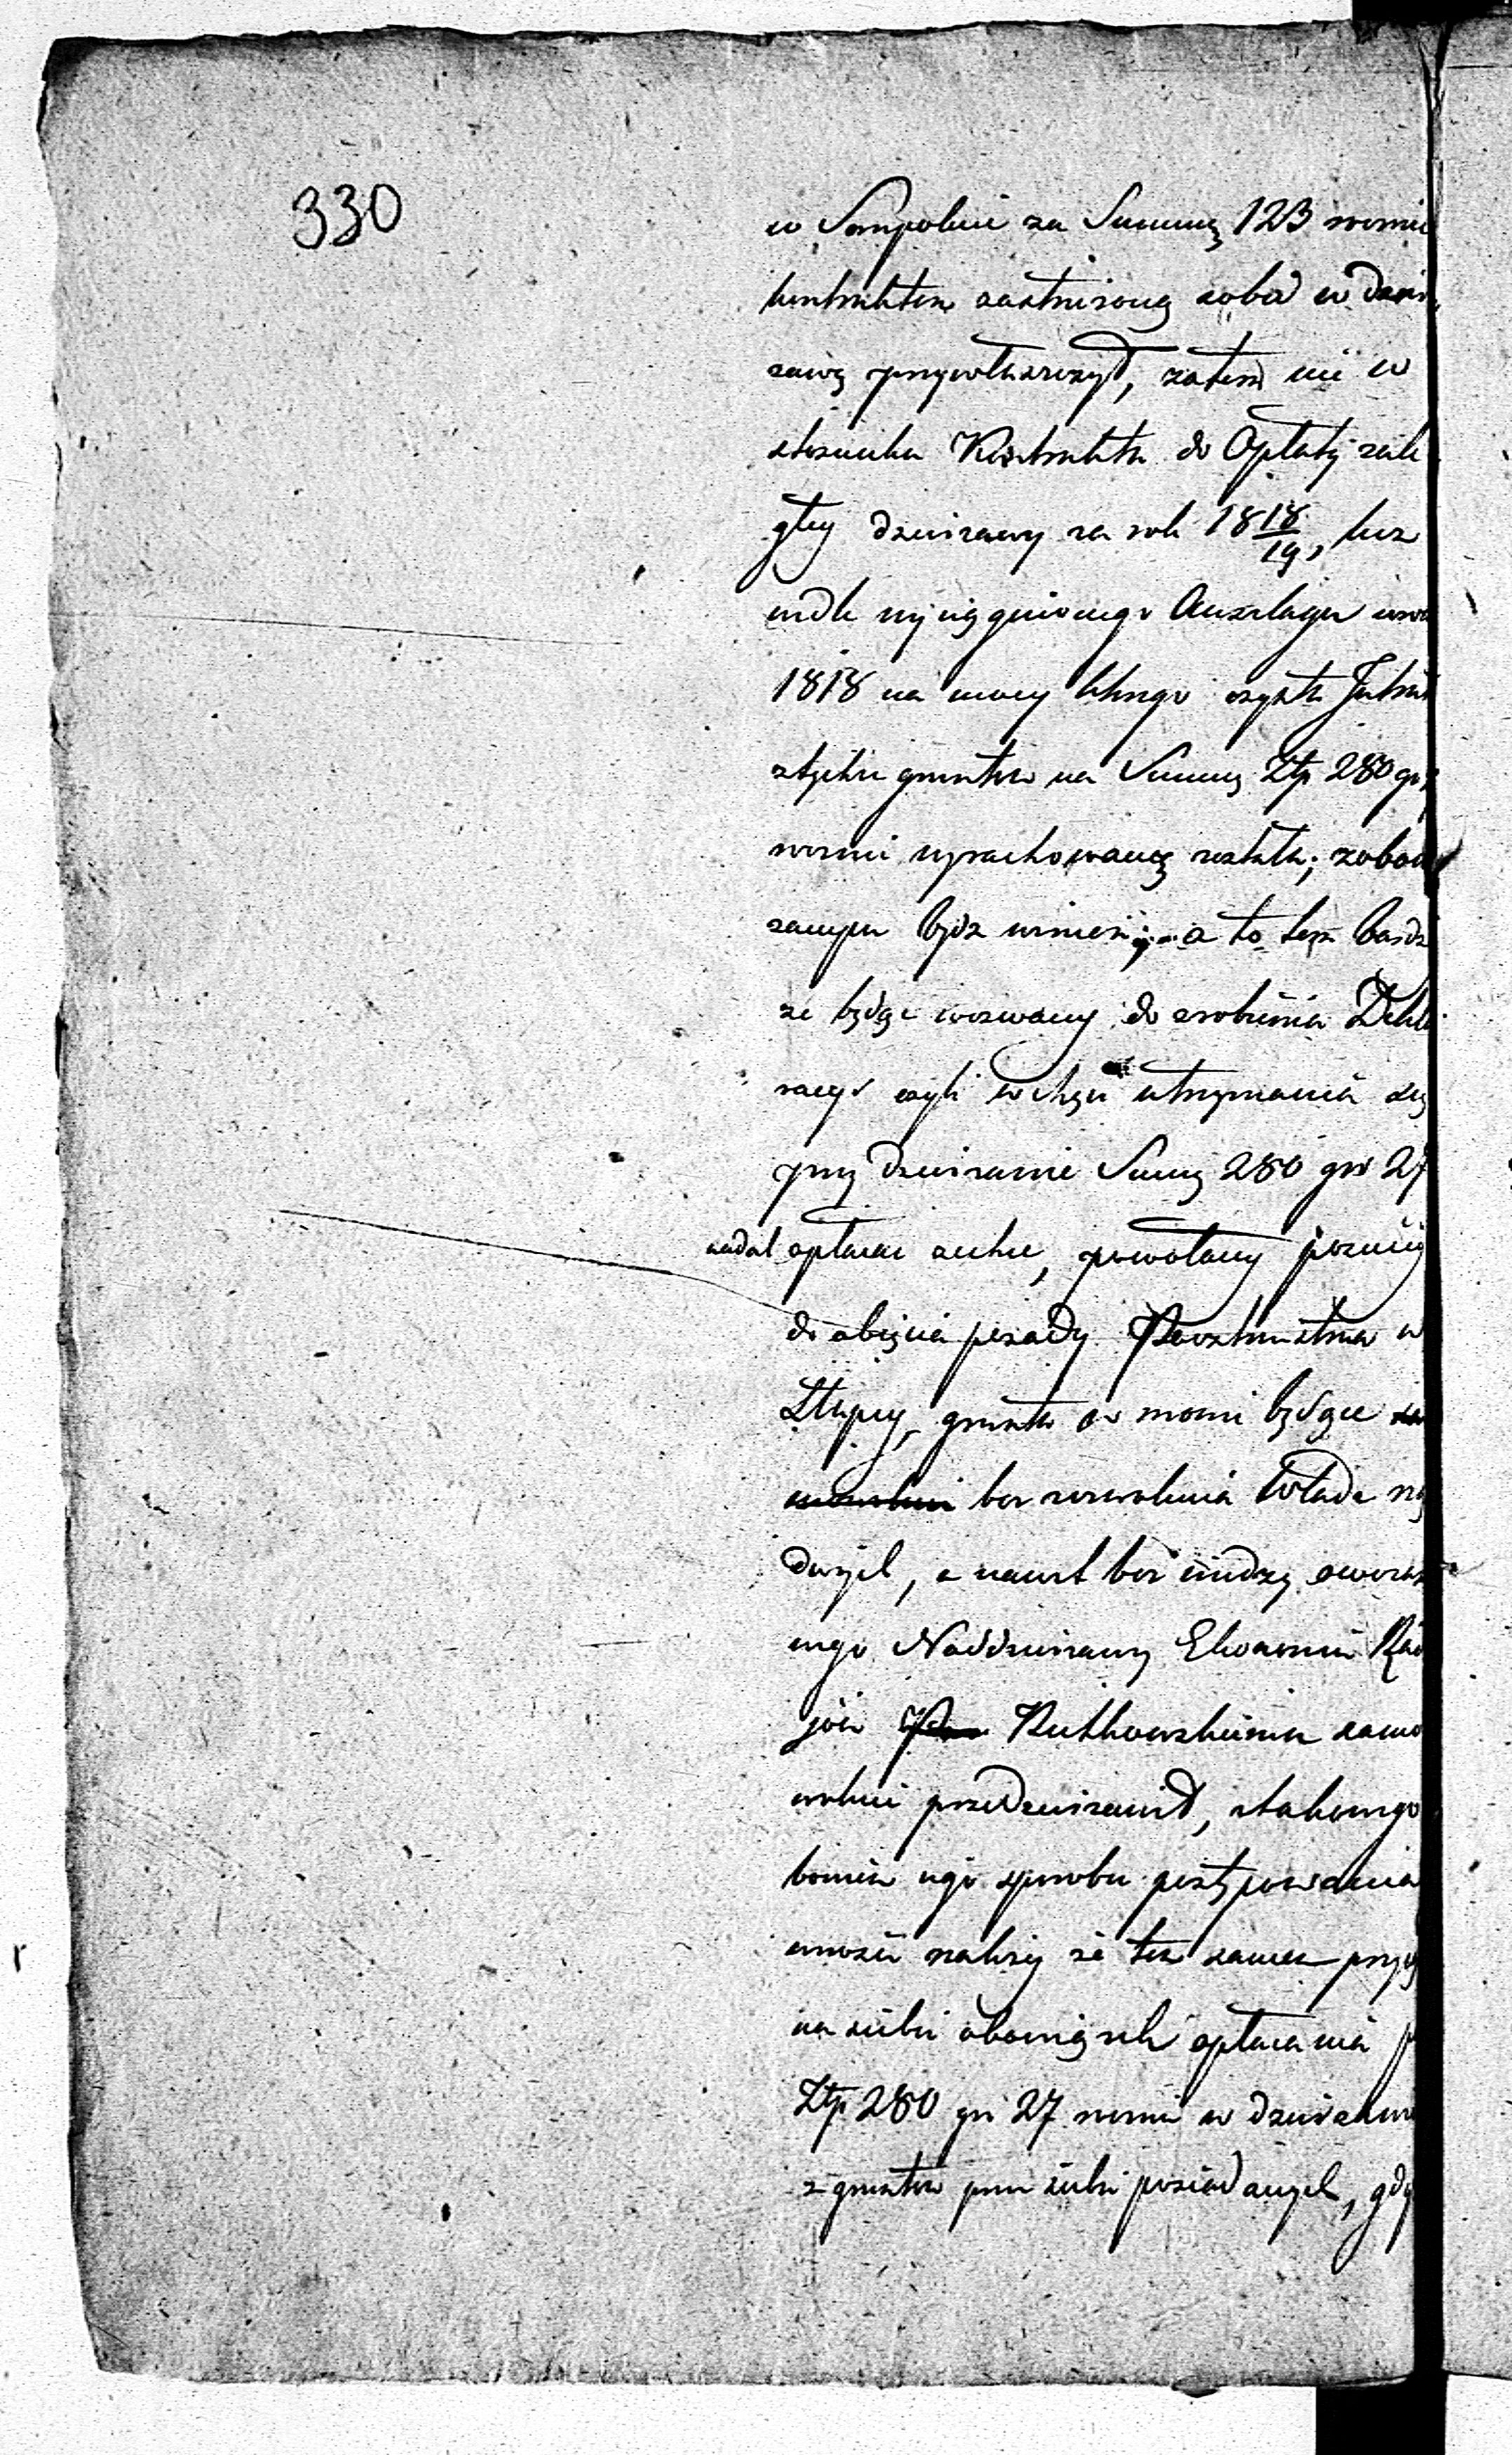 330
w Sompolnie za Summę 123 rocznie
kontraktem zastrzeżoną sobie w dzier
żawę przywłaszczył, zatem nie w
stosunku Kontraktu do Opłaty zale
głey dzierżawy za rok 18 18/19, lecz
wedle wyciągnionego Anszlagu
1818 na mocy którego czysta Intrat
z tychże gruntów na Summę Złp 280 gr
rocznie wyrachowaną została; zobowią
zanym bydz winien; a to tem bardz
że będąc wezwany do zrobienia Dekla
racyi czyli w chęci utrzymania się
przy dzierżawie Summę 280 gr 27
nadal opłacać zechce, powołany pozniey
do objęcia posady Pocztmistrza w
Słupcy, grunta w mowie będące
bez zezwolenia Władz wy
dzwignął, a nawet bez wiedzy
nego Naddzierżawcy Ekonomii
Rutkowskiemu samo
wolnie poddzierżawił, z takowego
bowiem iego sposobu postępowania
wnosić należy że ten samem przyj
na siebie obowiązek opłacania
Złp 280 gr 27 rocznie w dzierżawie
z gruntów przez siebie posiadanych, gdy